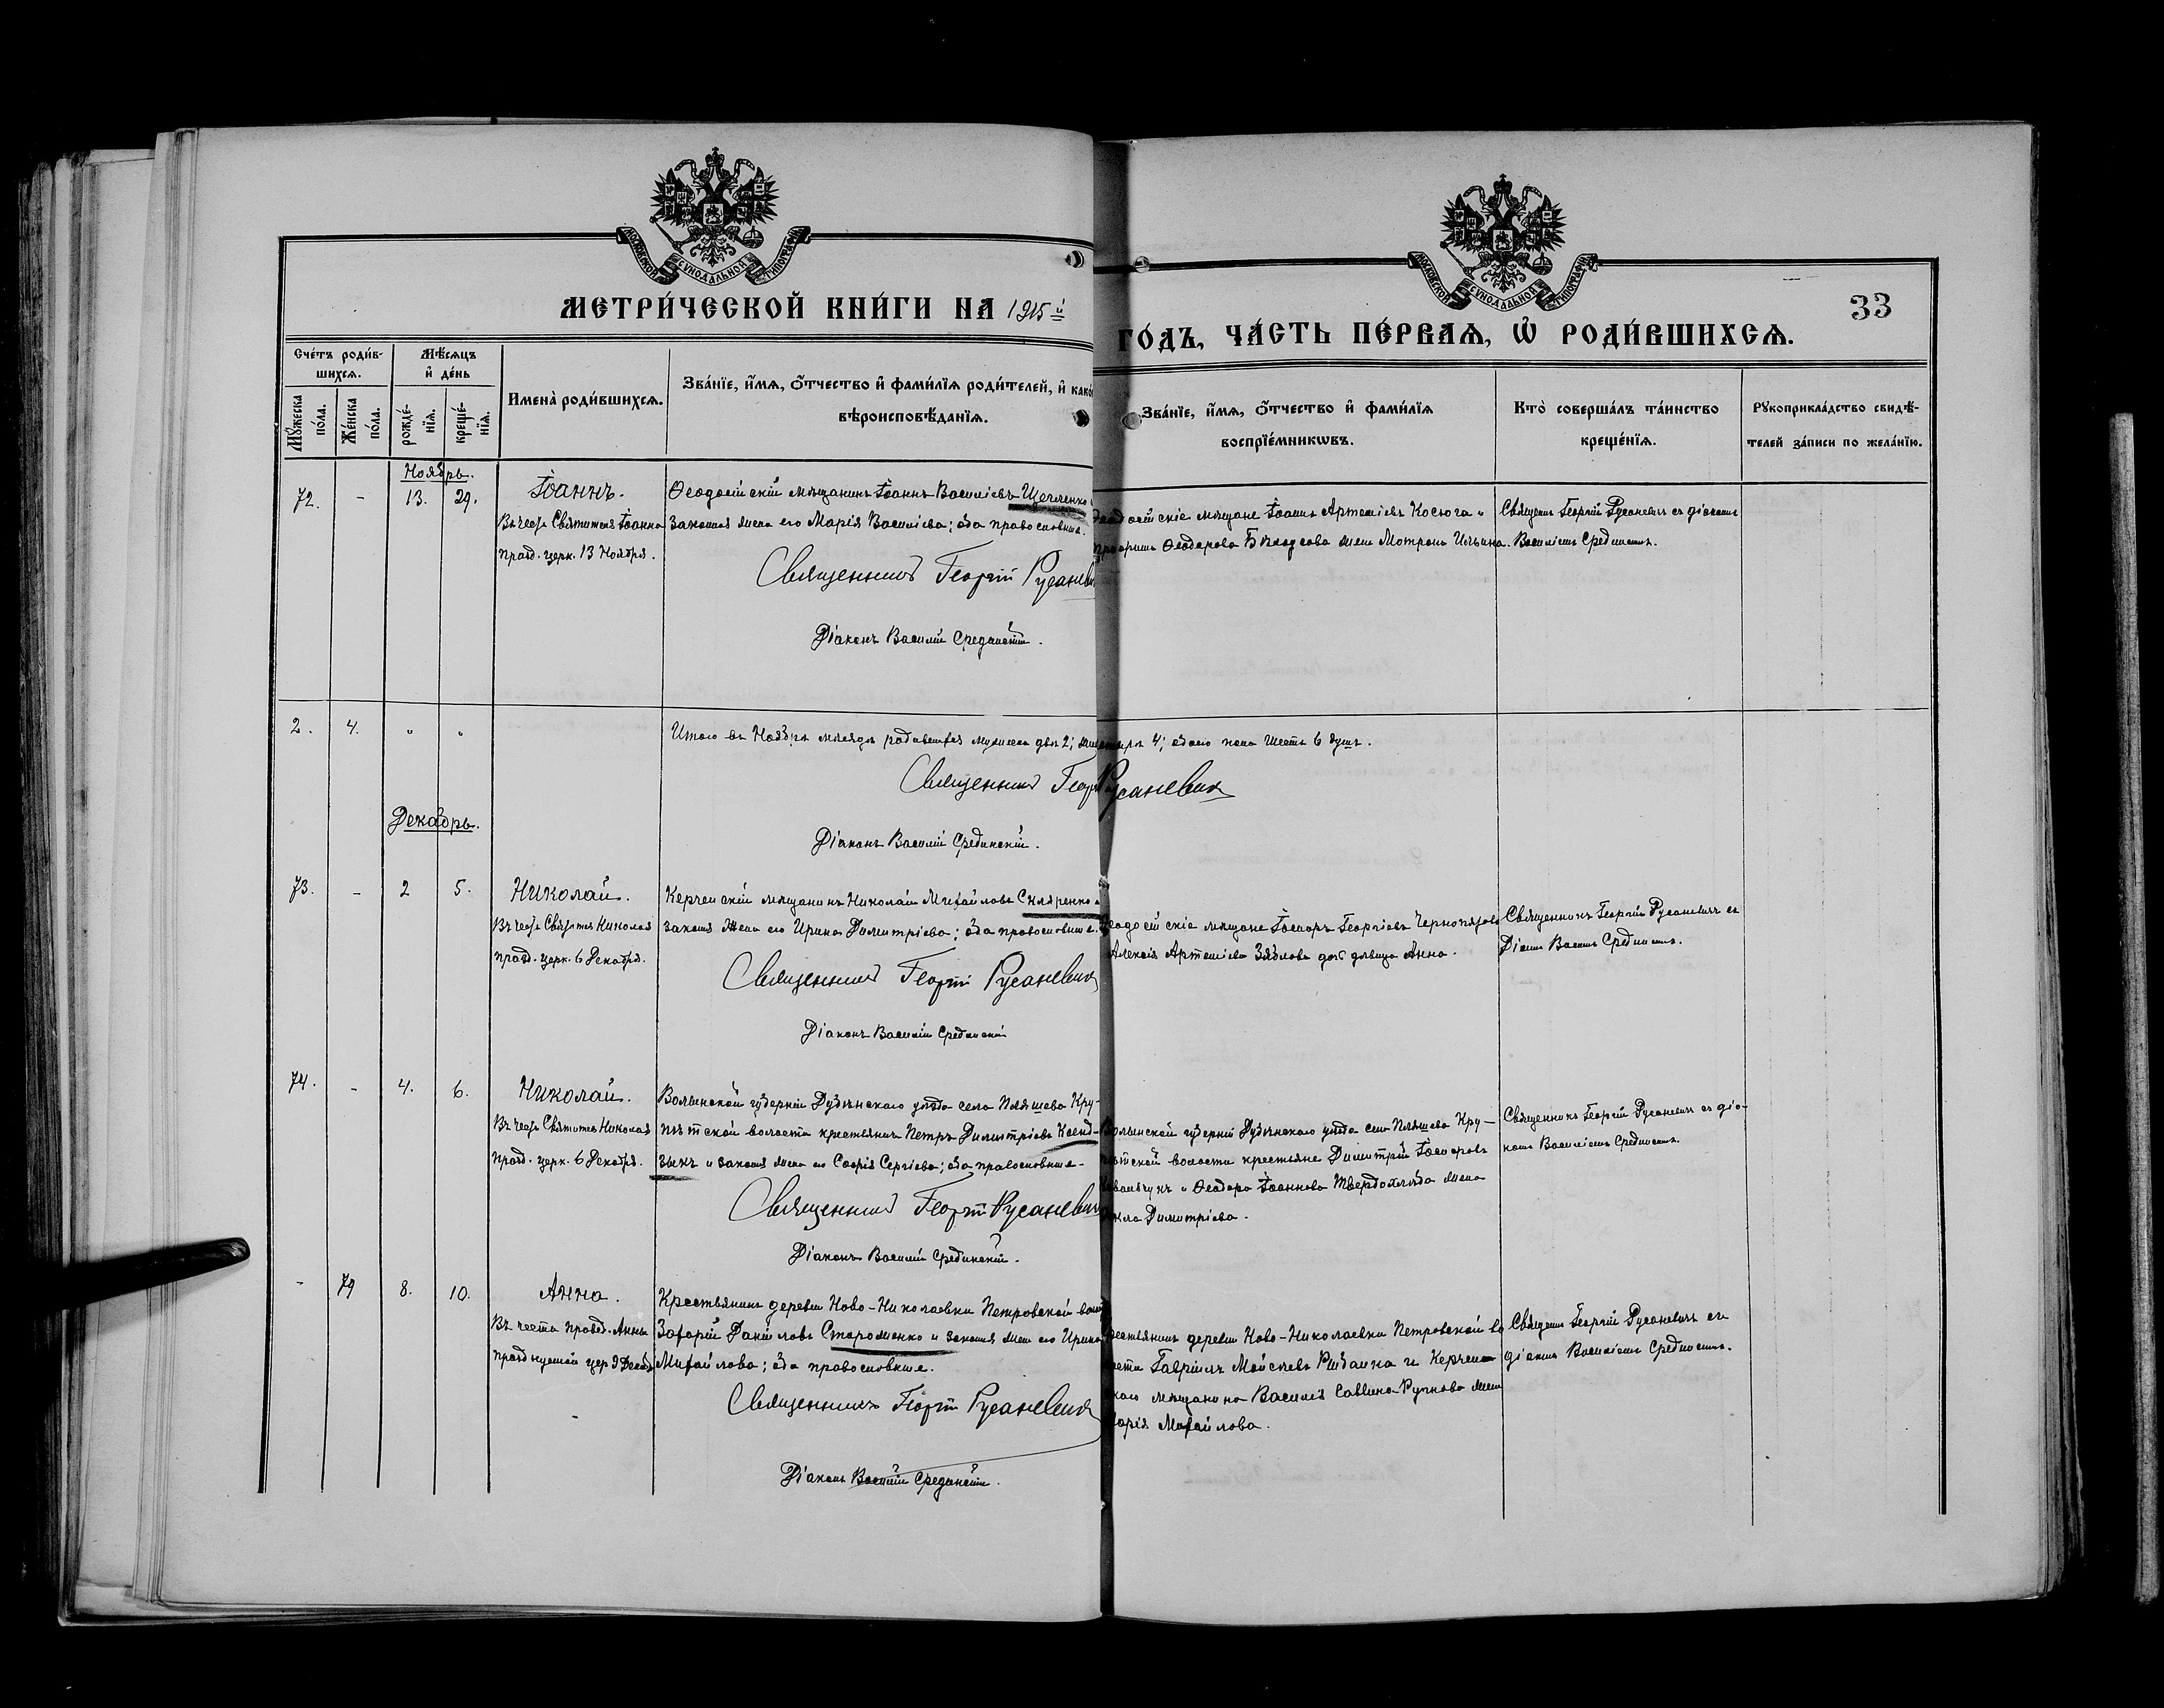 МОСКОВСКОЙ СѴНОДАЛЬНОЙ ТИПОГРАФІИ
МОСКОВСКОЙ СѴНОДАЛЬНОЙ ТИПОГРАФІИ
МЕТРИ́ЧЕСКОЙ КНИ́ГИ НА 1915й
ГО́ДЪ, ЧА́СТЬ ПЕ́РВАѦ, Ѽ РОДИ́ВШИХСѦ.
33
Сче́тъ роди́в-
шихсѧ.
Мѣ́сѧцъ
и҆ де́нь
Мꙋ́жеска по́ла.
Же́нска по́ла.
рожде́-
нїѧ.
креще́-
нїѧ.
Имена̀ роди́вшихсѧ.
Зва́нїе, и҆́мѧ, ѻ҆́тчество и҆ фами́лїѧ роди́телей, и҆ како́
вѣроисповѣ́данїѧ.
Зва́нїе, и҆́мѧ, ѻ҆́тчество и҆ фами́лїѧ
воспрїе́мникѡвъ.
Кто̀ соверша́лъ та́инство
креще́нїѧ.
Рꙋкоприкла́дство свидѣ́-
телей за́писи по жела́нїю.
Ноябрь.
72. - 13. 29. Іоаннъ.
Въ честь Святителя Іоанна
празд. церк. 13 Ноября.
Ѳеодосійскій мѣщанинъ Іоаннъ Василіевъ Щегленко
законная жена его Марія Василіева; оба православные.
Священникъ Георгій Русаневичъ
Діаконъ Василій Срединскій.
мѣщане Іоаннъ Артеміевъ Косюга и
Ѳеодорова жена Матрона Ильина.
Священ. Георгій Русаневичъ съ діакономъ
Василіемъ Срединскимъ.
2. 4. " "
Итого въ Ноябрѣ мѣсяцѣ родившихся мужеска два 2; 4; обоего пола шесть 6 душъ.
Священникъ Георгій Русаневичъ
Діаконъ Василій Срединскій.
Декабрь.
73. - 2 5. Николай.
Въ честь Святителя Николая
празд. церк. 6 Декабря.
Керченскій мѣщанинъ Николай Михайловъ Скляренко и
законная жена его Ирина Димитріева; оба православные.
Священникъ Георгій Русаневичъ
Діаконъ Василій Срединскій
Ѳеодосійскіе мѣщане Іосифъ Георгіевъ
Алексія Артеміева Зяблова дочь дѣвица Анна.
Священникъ Георгій Русаневичъ съ
Діакон. Василіемъ Срединскимъ.
74. - 4. 6. Николай.
Въ честь Святителя Николая
празд. церк. 6 Декабря.
Волынской губерніи Дубенскаго уѣзда села Пляшева Кру-
пецкой волости крестьянинъ Петръ Димитріевъ Ксенд-
зыкъ и законная жена его Софія Сергіева; оба православные.
Священникъ Георгій Русаневичъ
Діаконъ Василій Срединскій.
Волынской губерніи Дубенскаго уѣзда села Пляшева Кру-
пецкой волости крестьяне Димитрій Іосифовъ
и Ѳеодора Іоаннова Твердохлѣба жена
Димитріева.
Священникъ Георгій Русаневичъ съ діа-
кономъ Василіемъ Срединскимъ.
- 79 8. 10. Анна.
Въ честь правед. Анны
празднуемой цер. 9 Декаб.
Крестьянинъ деревни Ново-Николаевки Петровской волости
Захарій Даніиловъ Староменко и законная жена его Ирина
Михайлова; оба православные.
Священникъ Георгій Русаневичъ
Діаконъ Василій Срединскій.
Крестьянинъ деревни Ново-Николаевки Петровской во
лости Гавріилъ Моисеевъ и Керченс
каго мѣщанина Василія Саввина жена
Марія Михайлова.
Священ. Георгій Русаневичъ съ
діакон. Василіемъ Срединскимъ.